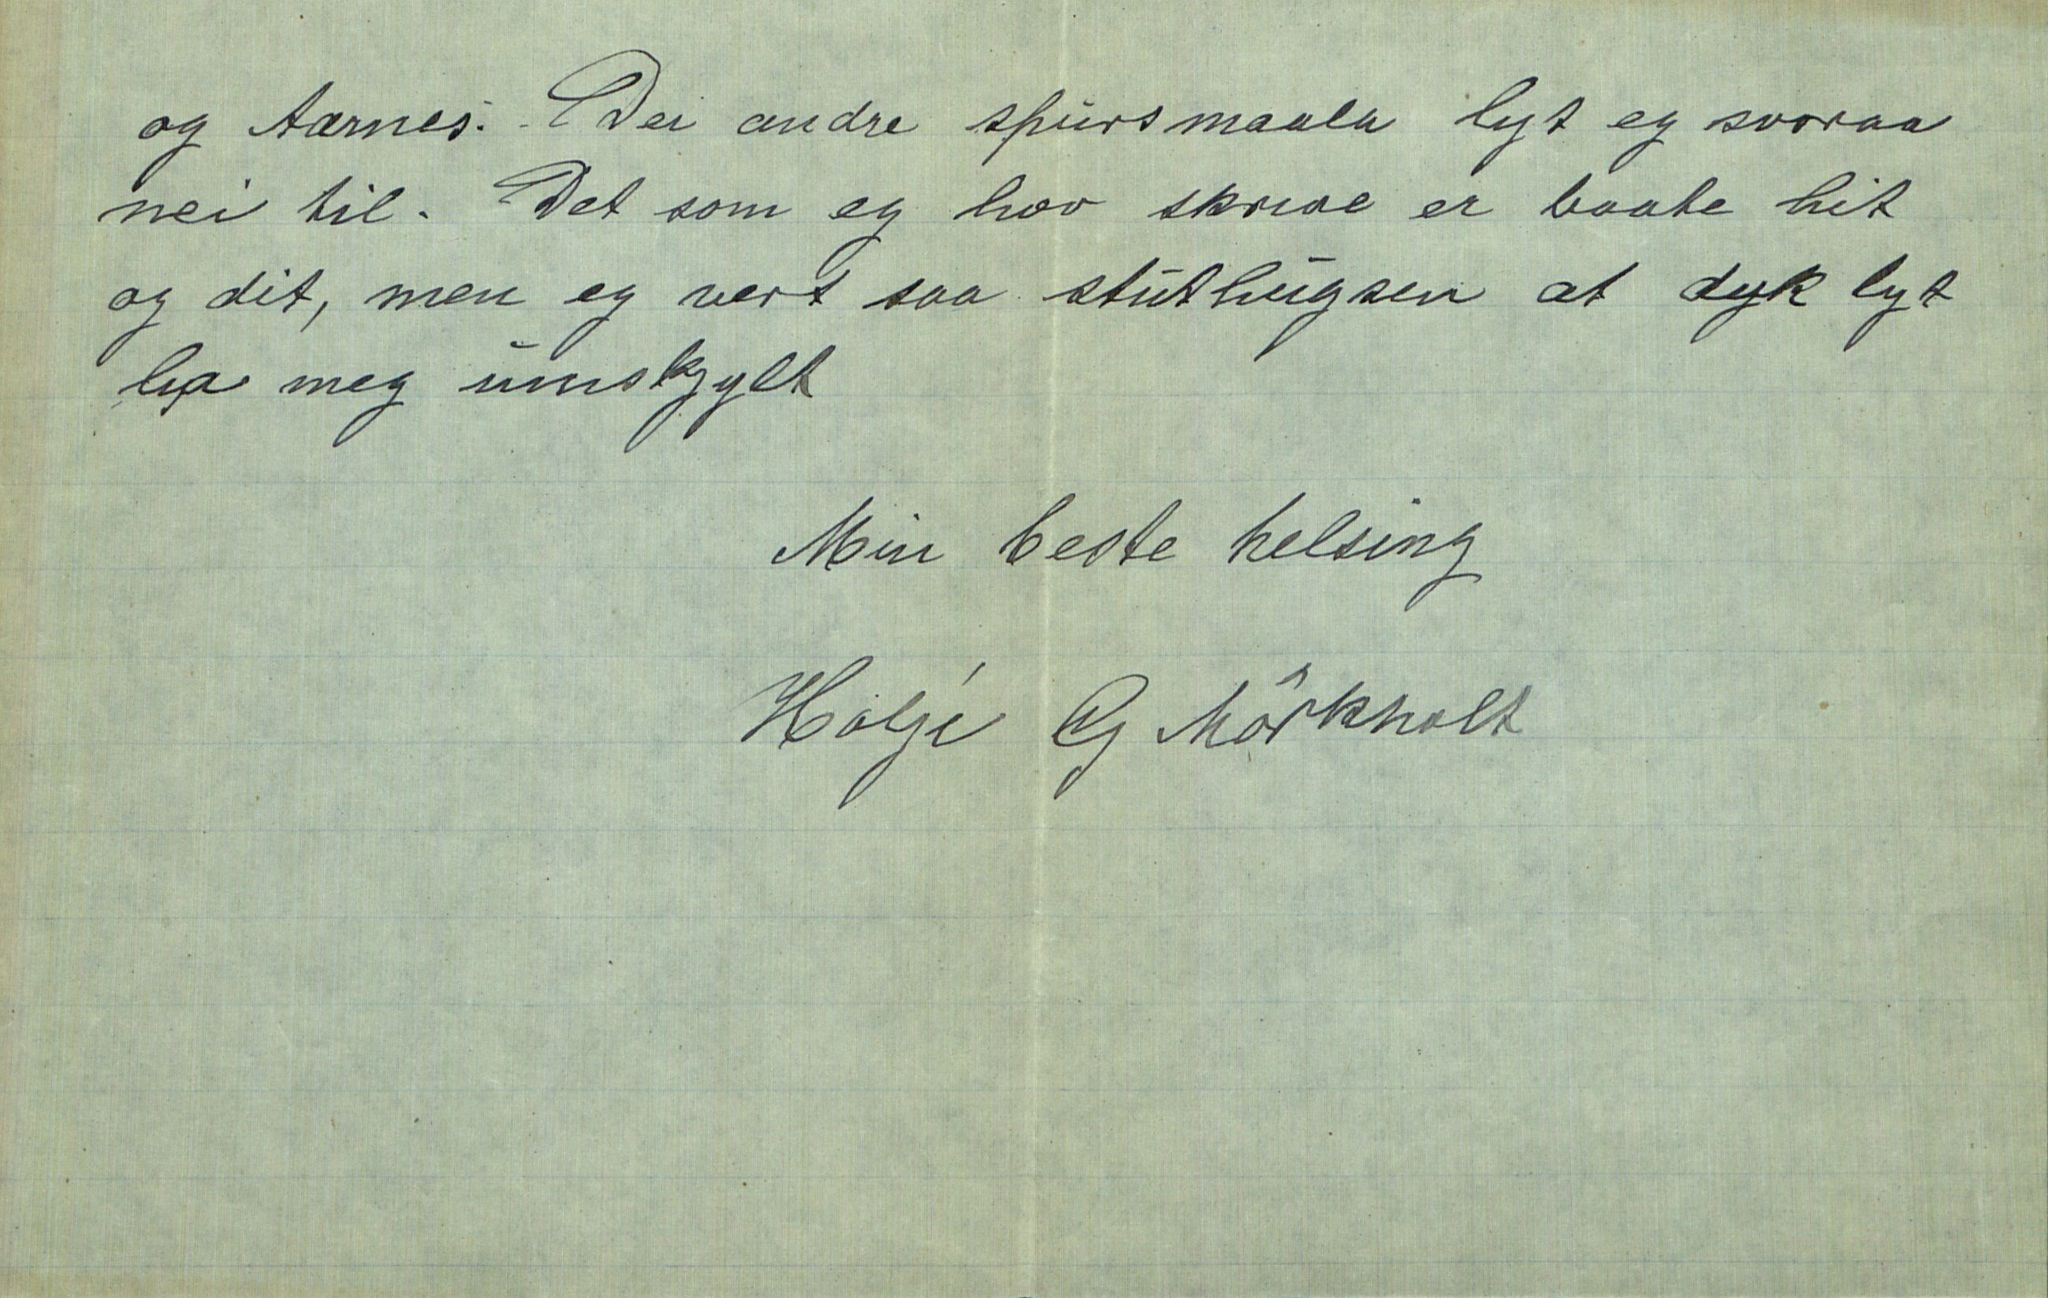 og Aarnes. Dei andre spursmaala lyt eg svaraa
nei til. Det som eg hav skrive er baate hit
og dit, men eg vert saa stuthugsen at dyk lyt
ha meg umskjylt
Min beste helsing
Holje G Mörkholt